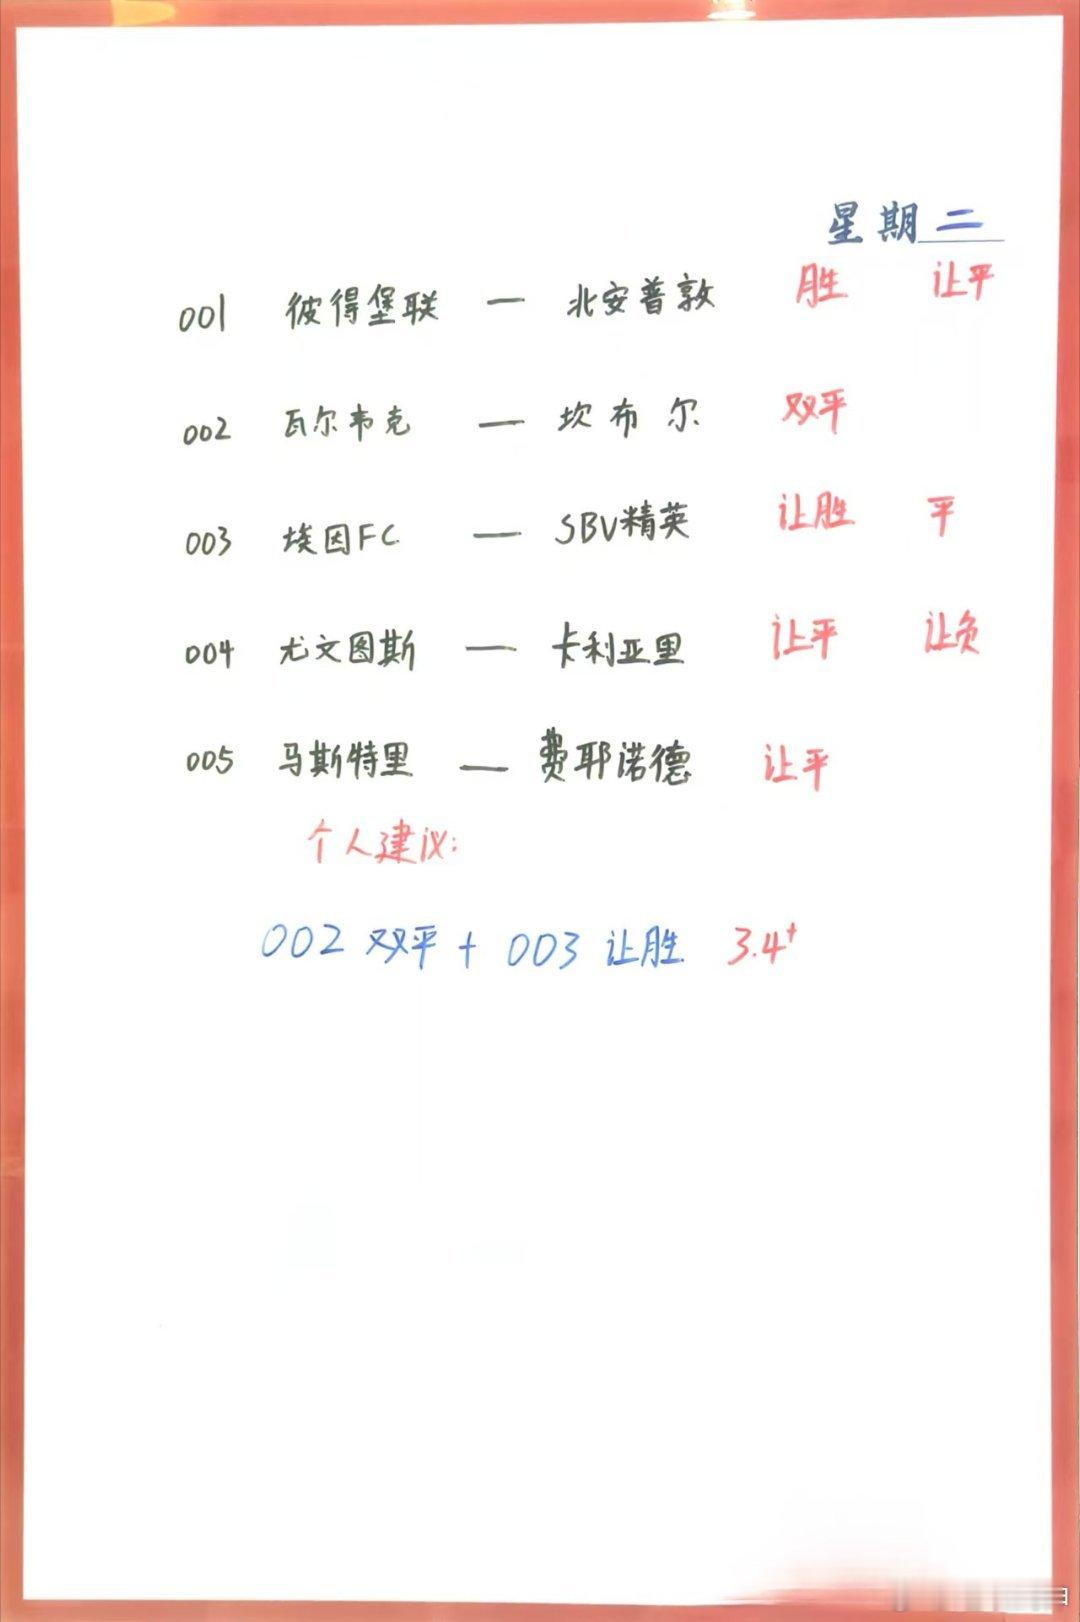 星期二
001 彼得堡联 — 北安普敦 胜 让平
002 瓦尔韦克 — 坎布尔 双平
003 埃因FC — SBV精英 让胜 平
004 尤文图斯 — 卡利亚里 让平 让负
005 马斯特里 — 费耶诺德 让平
个人建议:
002 双平 + 003 让胜 3.4+